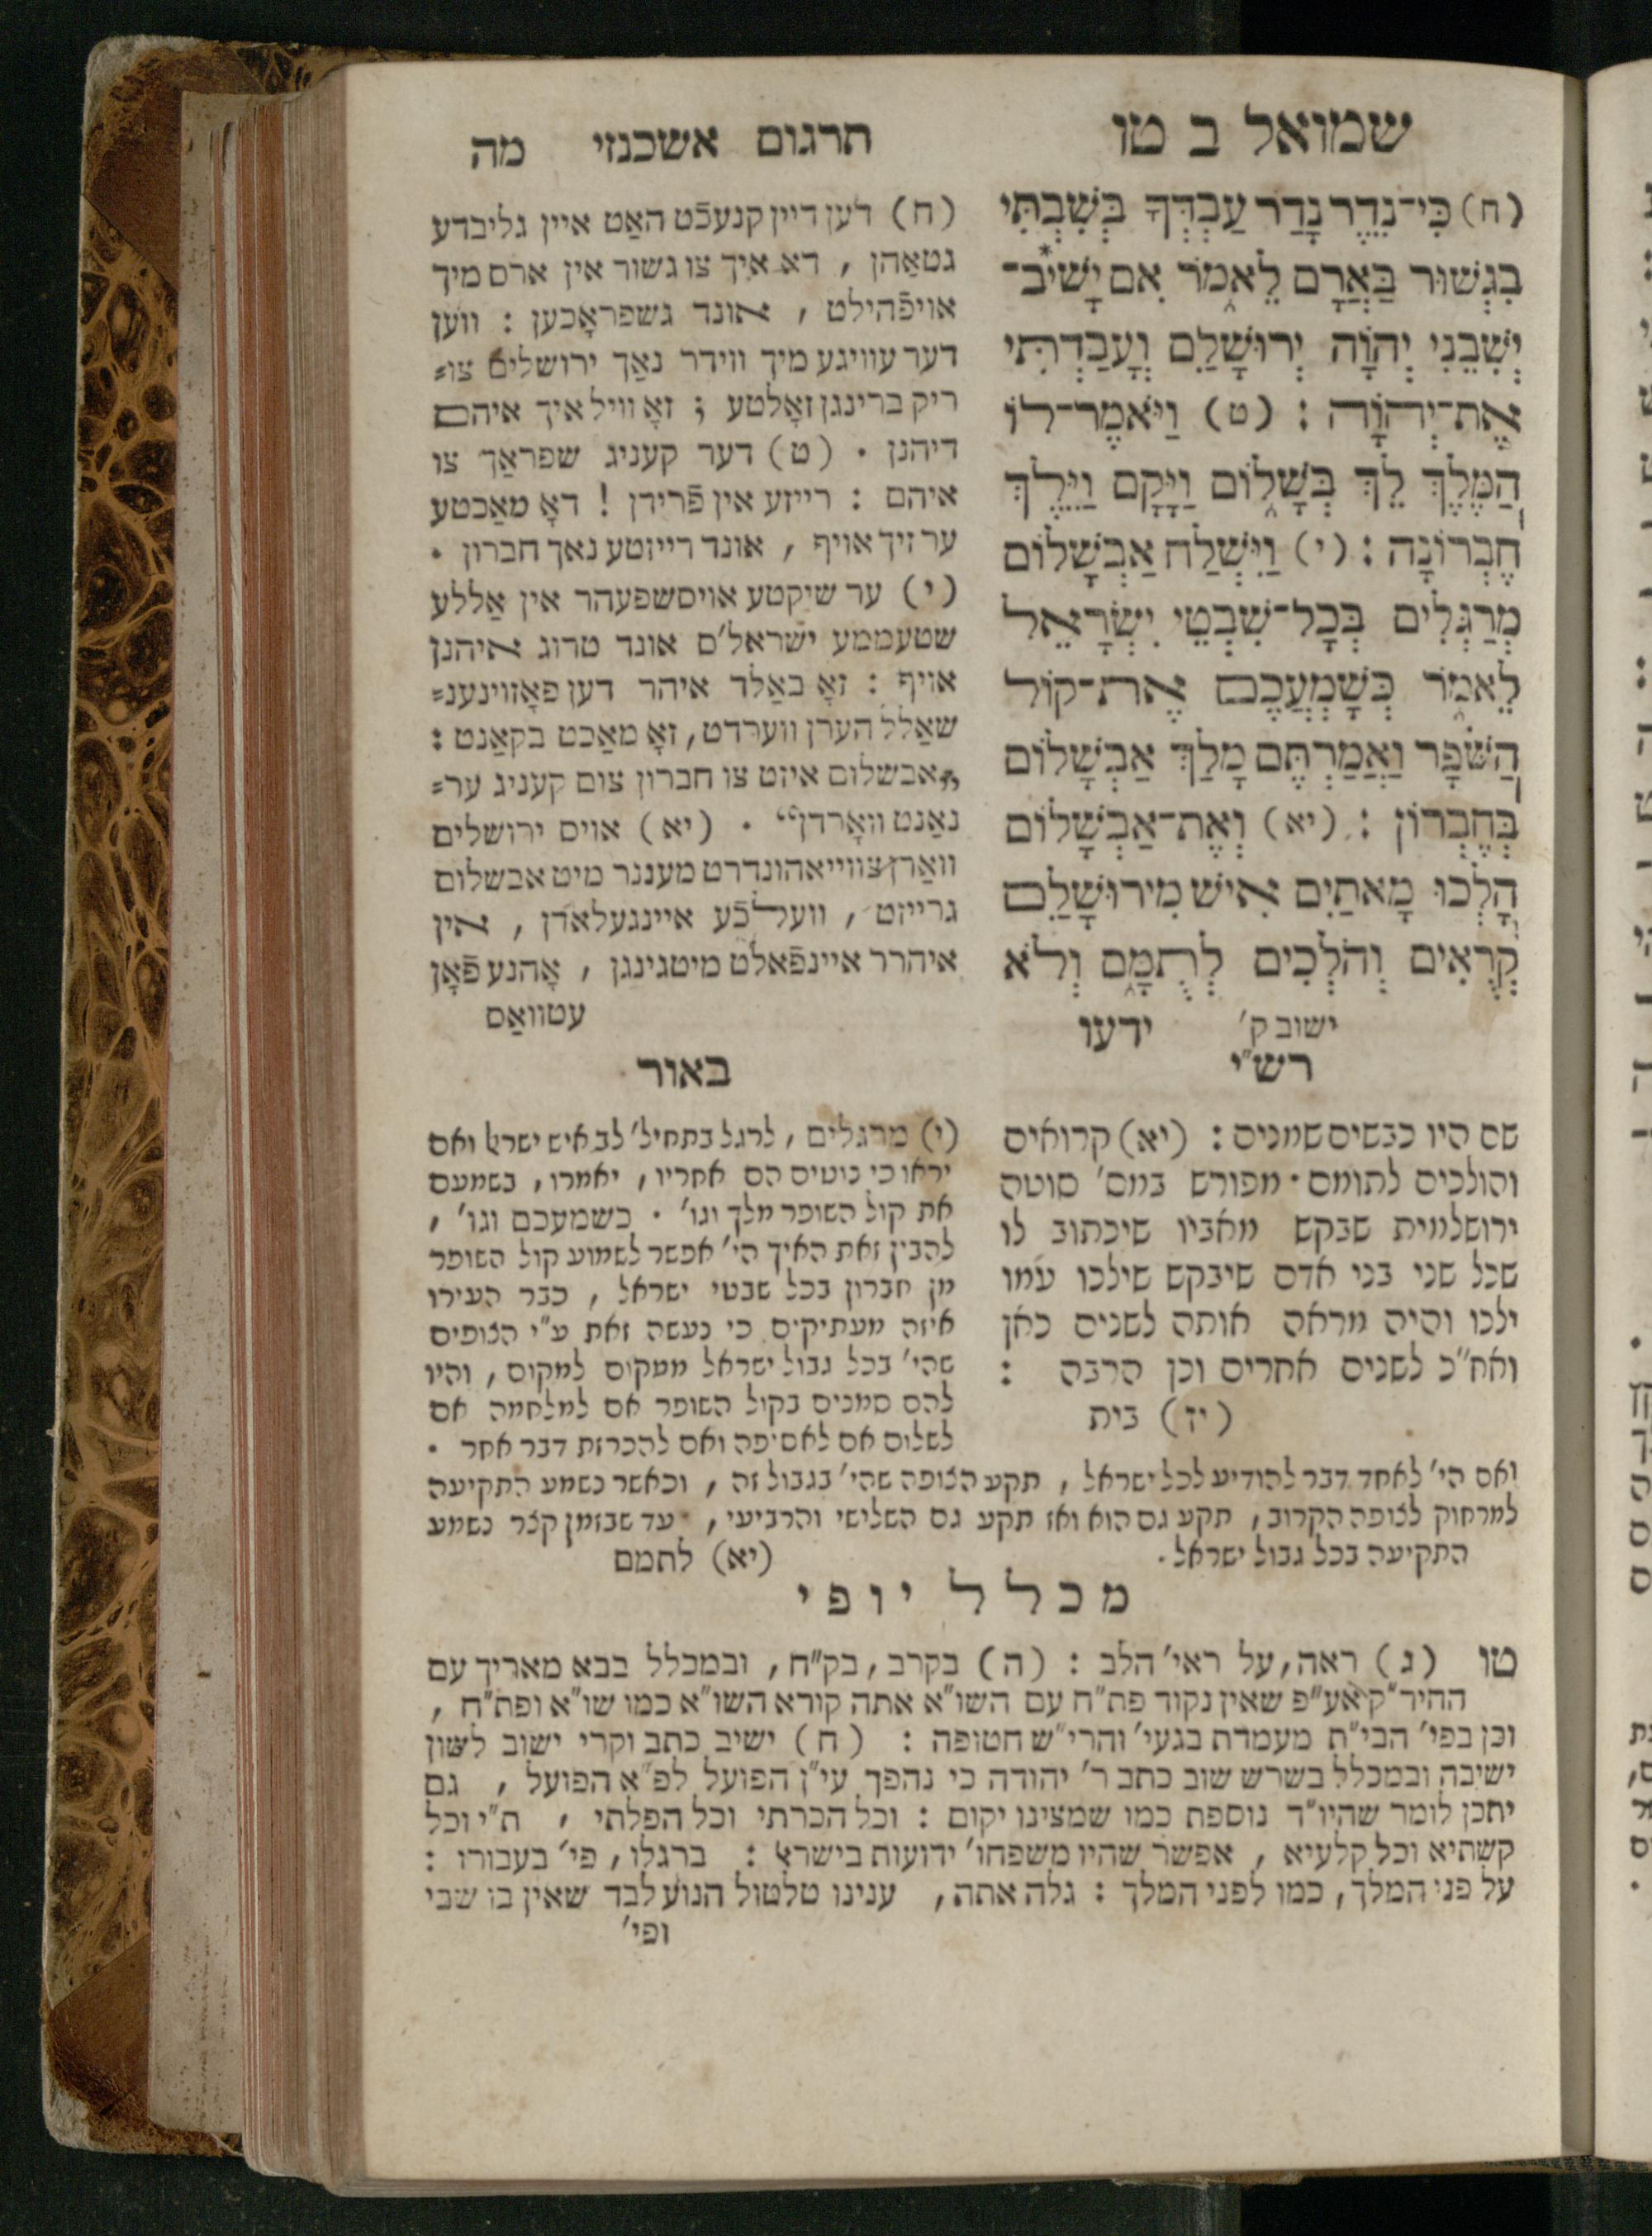 שמואל ב טו
תרגום אשכנזי מה
(ח) כִּי־נֵדֶר נָדַר עַבְדְּךָ בְּשִׁבְתִּי
בִגְשׁוּר בַּאֲרָם לֵאמֹר אִם יָשִׁיב־
יְשִׁבֵנִי יְהוָֹה יְרוּשָׁלִַם וְעָבַדְתִּי
אֶת־יְהוָֹה : (ט) וַיֹּאמֶר־לוֹ
הַמֶּלֶךְ לֵךְ בְּשָׁלוֹם וַיָּקָם וַיֵּלֶךְ
חֶבְרוֹנָה : (י) וַיִּשְׁלַח אַבְשָׁלוֹם
מְרַגְּלִים בְּכָל־שִׁבְטֵי יִשְׂרָאֵל
לֵאמֹר כְּשָׁמְעֲכֶם אֶת־קוֹל
הַשֹּׁפָר וַאֲמַרְתֶּם מָלַךְ אַבְשָׁלוֹם
בְּחֶבְרוֹן : (יא) וְאֶת־אַבְשָׁלוֹם
הָלְכוּ מָאתַיִם אִישׁ מִירוּשָׁלִַם
קְרֻאִים וְהֹלְכִים לְתֻמָּם וְלֹא
ישוב ק' ידעו
(ח) דען דיין קנעכֿט האַט איין גליבדע
גטאַהן , דא איך צו גשור אין ארם מיך
אויפֿהילט , אונד גשפראָכען : ווען
דער עוויגע מיך ווידר נאַך ירושלים צו=
ריק ברינגן זאָלטע ; זאָ וויל איך איהם
דיהנן . (ט) דער קעניג שפראַך צו
איהם : רייזע אין פֿרידן ! דאָ מאַכטע
ער זיך אויף , אונד רייזטע נאך חברון .
(י) ער שיקטע אויסשפעהר אין אַללע
שטעממע ישראל'ם אונד טרוג איהנן
אויף : זאָ באַלד איהר דען פאָזוינענ=
שאַלל הערן ווערדט, זאָ מאַכט בקאַנט :
„אבשלום איזט צו חברון צום קעניג ער=
נאַנט וואָרדן“ . (יא) אויס ירושלים
וואַרן צווייאהונדרט מעננר מיט אבשלום
גרייזט , וועלכֿע איינגעלאדן , אין
איהרר איינפֿאלט מיטגינגן , אָהנע פֿאָן
עטוואַס
רש"י
שם היו כבשים שמנים : (יא) קרואים
והולכים לתומם . מפורש במס' סוטה
ירושלמית שבקש מאביו שיכתוב לו
שכל שני בני אדם שיבקש שילכו עמו
ילכו והיה מראה אותה לשנים כאן
ואח"כ לשנים אחרים וכן הרבה :
(יז) בית
באור
(י) מרגלים , לרגל בתחיל' לב איש ישראל ואם
יראו כי נוטים הם אחריו , יאמרו , בשמעם
את קול השופר מלך וגו' . כשמעכם וגו' ,
להבין זאת האיך הי' אפשר לשמוע קול השופר
מן חברון בכל שבטי ישראל , כבר העירו
איזה מעתיקים כי נעשה זאת ע"י הצופים
שהי' בכל גבול ישראל ממקום למקום , והיו
להם סמנים בקול השופר אם למלחמה אם
לשלום אם לאסיפה ואם להכרזת דבר אחר .
ואם הי' לאחד דבר להודיע לכל ישראל , תקע הצופה שהי' בגבול זה , וכאשר נשמע התקיעה
למרחוק לצופה הקרוב , תקע גם הוא ואז תקע גם השלישי והרביעי , עד שבזמן קצר נשמע
התקיעה בכל גבול ישראל . (יא) לתמם
מכלל יופי
טו (ג) ראה, על ראי' הלב : (ה) בקרב, בק"ח, ובמכלל בבא מאריך עם
החיר"ק אע"פ שאין נקוד פת"ח עם השו"א אתה קורא השו"א כמו שו"א ופת"ח ,
וכן בפי' הבי"ת מעמדת בגעי' והרי"ש חטופה : (ח) ישיב כתב וקרי ישוב לשון
ישיבה ובמכלל בשרש שוב כתב ר' יהודה כי נהפך עי"ן הפועל לפ"א הפועל , גם
יתכן לומר שהיו"ד נוספת כמו שמצינו יקום : וכל הכרתי וכל הפלתי , ת"י וכל
קשתיא וכל קלעיא , אפשר שהיו משפחו' ידועות בישראל : ברגלו, פי' בעבורו :
על פני המלך, כמו לפני המלך : גלה אתה, ענינו טלטול הנוע לבד שאין בו שבי
ופי'